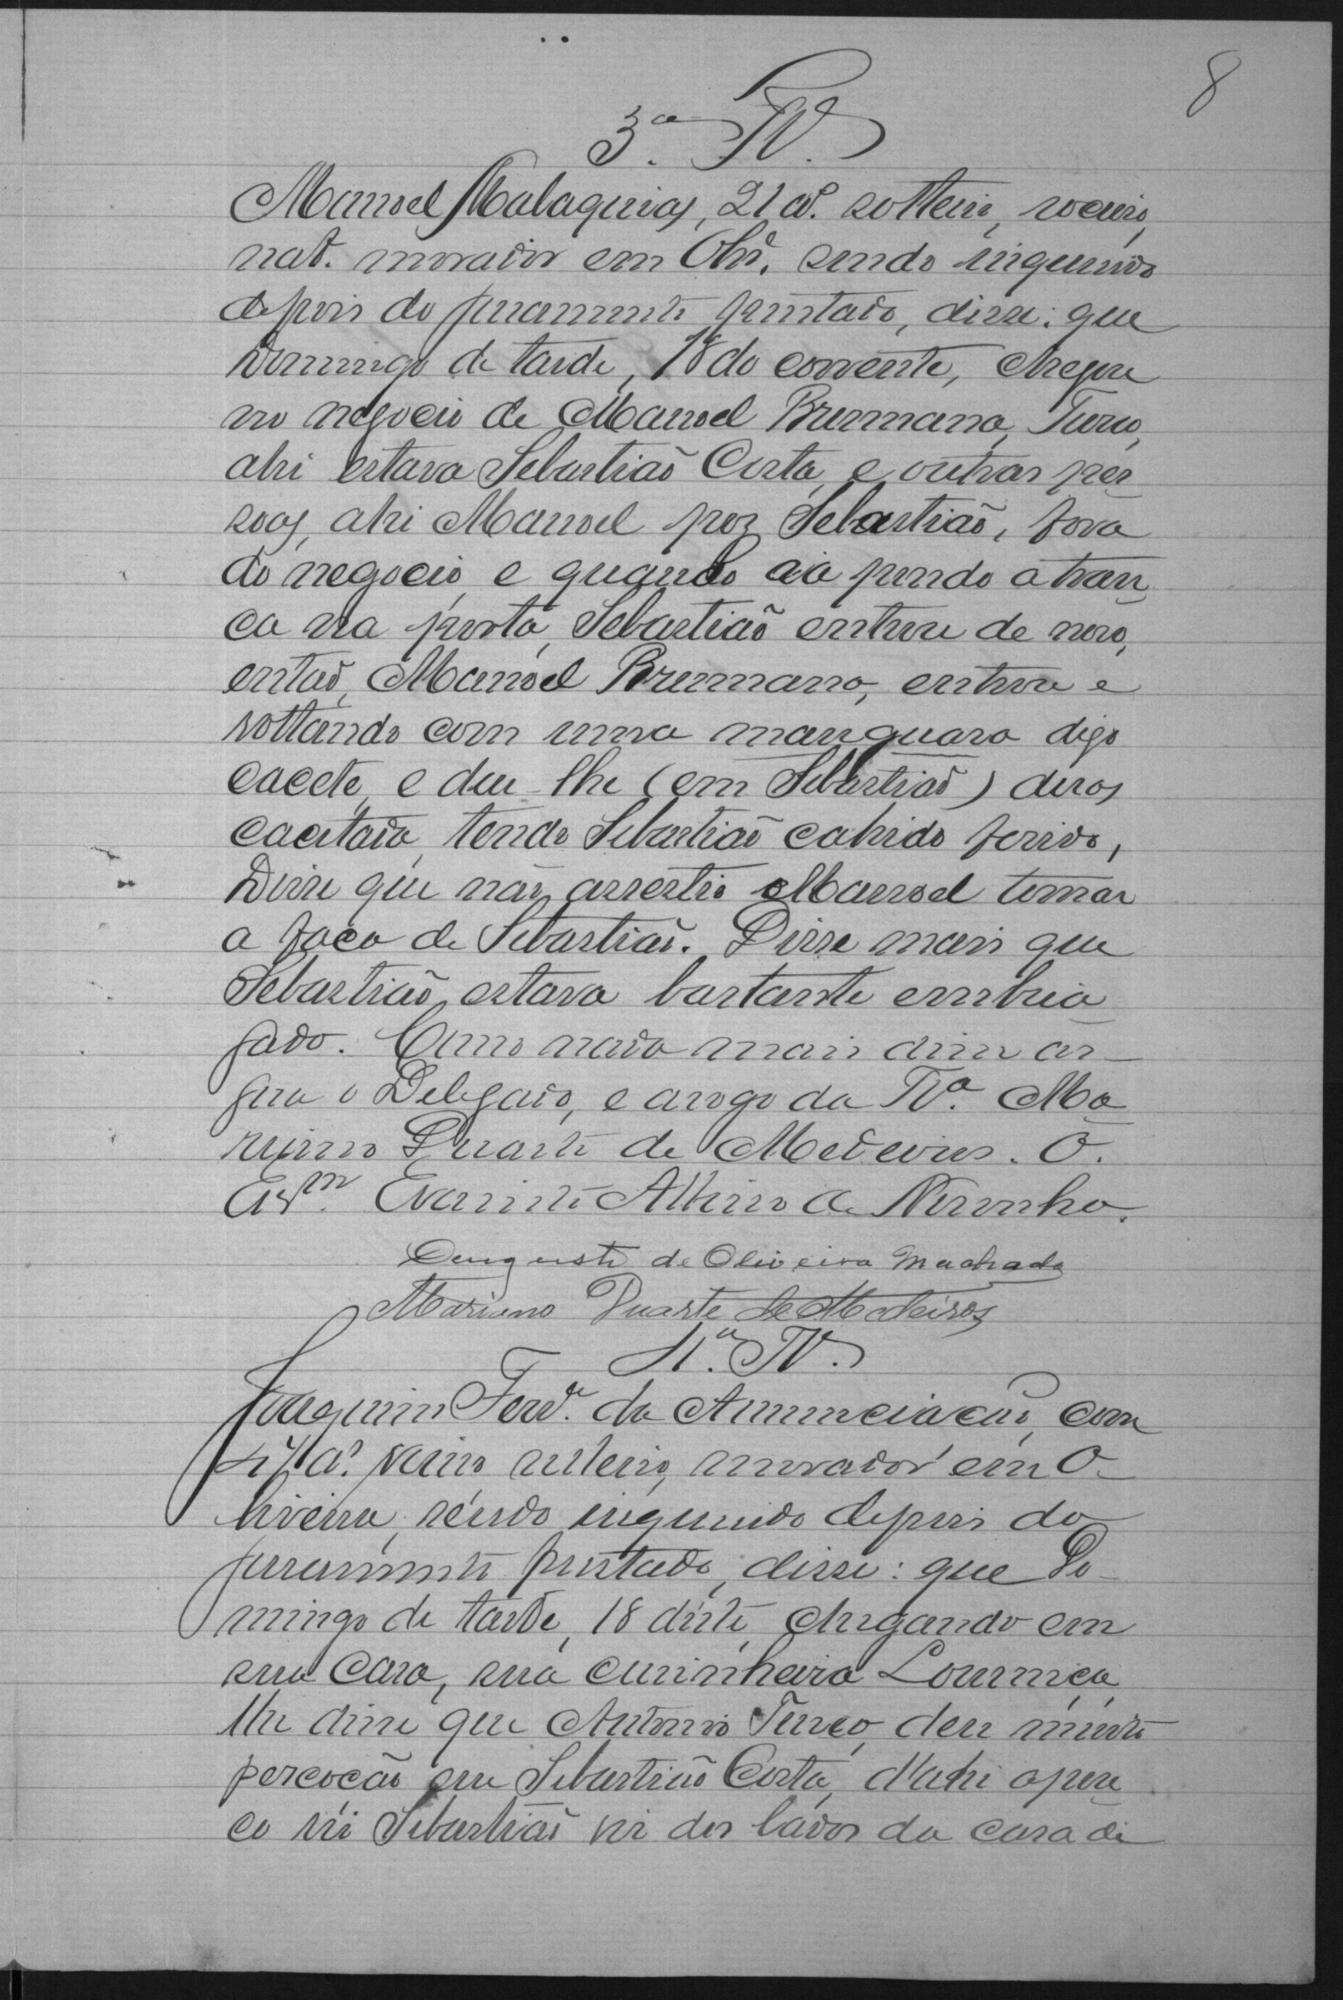 8
3ª Tª.
Manoel Malaquias, 21 aº. solteiro, roceiro,
nat. morador em Olivª, sendo inquirido
depois do juramento prestado, disse: que
Domingo de tarde, 18 do corrente, chegou
no negocio de Manoel Brumano, Turco,
ahi estava Sebastião Costa, e outras pes
soas, ahi Manoel poz Sebastião, fora
do negocio, e quando ia pondo a tran
ca na porta, Sebastião entrou de novo,
então, Manoel Brumano, entrou e
voltando com uma manguara digo
cacete, e deu-lhe (em Sebastião) duas
cacetada, tendo Sebastião cahido ferido,
Disse que não assestio Manoel tomar
a faca de Sebastião. Disse mais que
Sebastião, estava bastante embria
gado. Como nada mais disse as-
gna o Delegado, e arogo da Tª. Ma
riano Duarte de Medeiros. O.
Esᵐ. Evaristo Albino de Noronha.
Augusto de Oliveira Machado
Mariano Duarte de Medeiros
4ª. Tª.
Joaquim Ferª. da Annunciação, com
aˢ. solteiro, morador em O-
liveira, sendo inquirido depois do
juramento prestado, disse: que Do-
mingo de tarde, 18 deste, chegando em
sua casa, sua cusinheira Lourença,
lhe disse que Antonio Turco, deu muita
percoção em Sebastião Costa, d'ahi a pou
co vi Sebastião vir dos lados da casa de